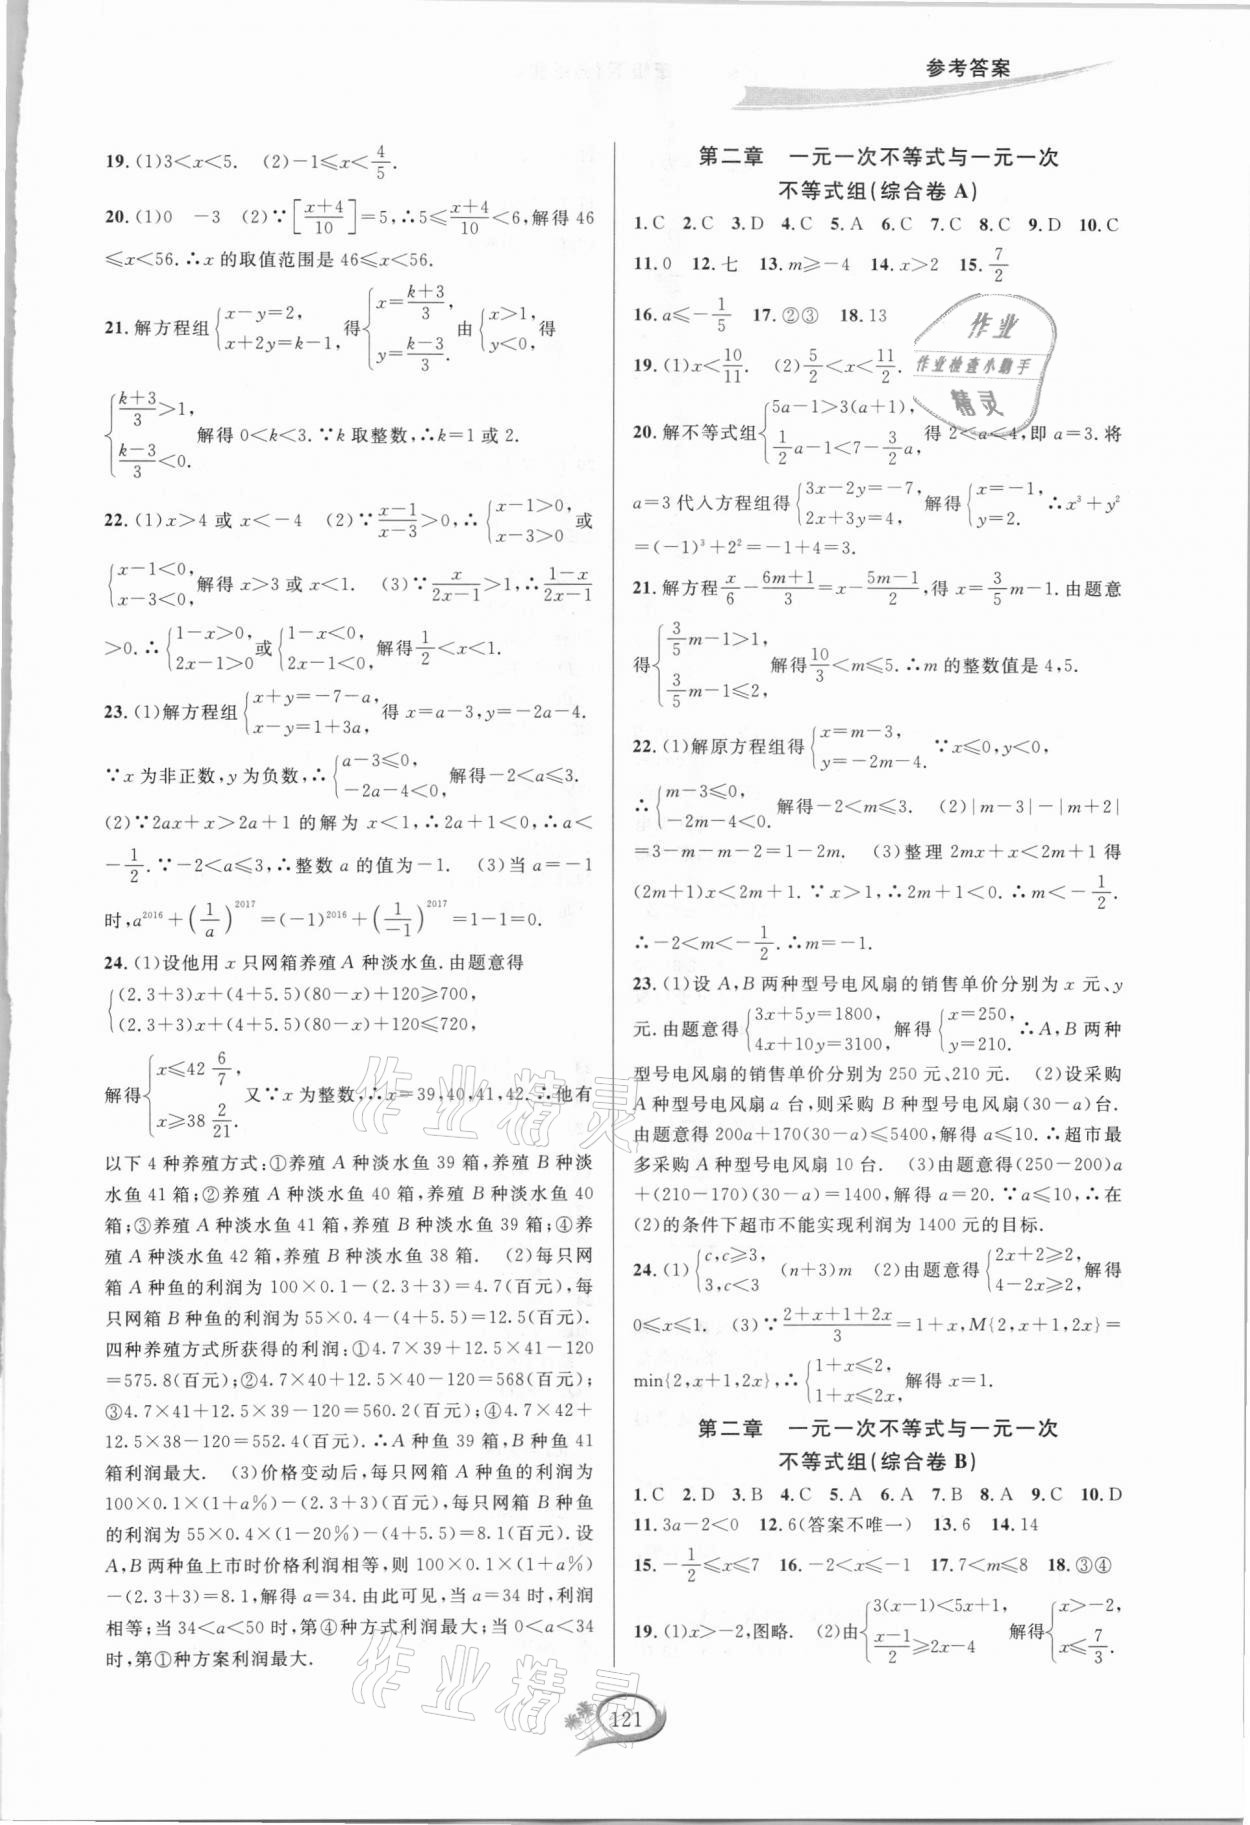 参考答案
19. (1)3<x<5.  (2)-1≤x<4/5.
20. (1)0  -3  (2)∵[(x+4)/10]=5,∴5≤(x+4)/10<6,解得46
≤x<56.∴x的取值范围是46≤x<56.
21. 解方程组{x-y=2, x+2y=k-1, 得{x=(k+3)/3, y=(k-3)/3. 由{x>1, y<0, 得
{(k+3)/3>1, (k-3)/3<0. 解得0<k<3.∵k取整数,∴k=1或2.
22. (1)x>4或x<-4  (2)∵(x-1)/(x-3)>0,∴{x-1>0, x-3>0 或
{x-1<0, x-3<0, 解得x>3或x<1.  (3)∵x/(2x-1)>1,∴(1-x)/(2x-1)
>0.∴{1-x>0, 2x-1>0 或{1-x<0, 2x-1<0, 解得1/2<x<1.
23. (1)解方程组{x+y=-7-a, x-y=1+3a, 得x=a-3,y=-2a-4.
∵x为非正数,y为负数,∴{a-3≤0, -2a-4<0. 解得-2<a≤3.
(2)∵2ax+x>2a+1的解为x<1,∴2a+1<0,∴a<
-1/2.∵-2<a≤3,∴整数a的值为-1.  (3)当a=-1
时,a²⁰¹⁶+(1/a)²⁰¹⁷=(-1)²⁰¹⁶+(1/-1)²⁰¹⁷=1-1=0.
24. (1)设他用x只网箱养殖A种淡水鱼.由题意得
{(2.3+3)x+(4+5.5)(80-x)+120≥700,
(2.3+3)x+(4+5.5)(80-x)+120≤720,
解得{x≤42 6/7, x≥38 2/21. 又∵x为整数,∴x=39,40,41,42.∴他有
以下4种养殖方式:①养殖A种淡水鱼39箱,养殖B种淡
水鱼41箱;②养殖A种淡水鱼40箱,养殖B种淡水鱼40
箱;③养殖A种淡水鱼41箱,养殖B种淡水鱼39箱;④养
殖A种淡水鱼42箱,养殖B种淡水鱼38箱.  (2)每只网
箱A种鱼的利润为100×0.1-(2.3+3)=4.7(百元),每
只网箱B种鱼的利润为55×0.4-(4+5.5)=12.5(百元).
四种养殖方式所获得的利润:①4.7×39+12.5×41-120
=575.8(百元);②4.7×40+12.5×40-120=568(百元);
③4.7×41+12.5×39-120=560.2(百元);④4.7×42+
12.5×38-120=552.4(百元).∴A种鱼39箱,B种鱼41
箱利润最大.  (3)价格变动后,每只网箱A种鱼的利润为
100×0.1×(1+a%)-(2.3+3)(百元),每只网箱B种鱼
的利润为55×0.4×(1-20%)-(4+5.5)=8.1(百元).设
A,B两种鱼上市时价格利润相等,则100×0.1×(1+a%)
-(2.3+3)=8.1,解得a=34.由此可见,当a=34时,利润
相等;当34<a<50时,第④种方式利润最大;当0<a<34
时,第①种方案利润最大.
第二章  一元一次不等式与一元一次
不等式组(综合卷A)
1.C  2.C  3.D  4.C  5.A  6.C  7.C  8.C  9.D  10.C
11.0  12.七  13.m≥-4  14.x>2  15.7/2
16.a≤-1/5  17.②③  18.13
19. (1)x<10/11.  (2)5/2<x<11/2.
20. 解不等式组{5a-1>3(a+1), 1/2a-1<7-3/2a, 得2<a<4,即a=3.将
a=3代入方程组得{3x-2y=-7, 2x+3y=4, 解得{x=-1, y=2. ∴x³+y²
=(-1)³+2²=-1+4=3.
21. 解方程x/6-(6m+1)/3=x-(5m-1)/2,得x=3/5m-1.由题意
得{3/5m-1>1, 3/5m-1≤2, 解得10/3<m≤5.∴m的整数值是4,5.
22. (1)解原方程组得{x=m-3, y=-2m-4. ∵x≤0,y<0,
∴{m-3≤0, -2m-4<0. 解得-2<m≤3.  (2)|m-3|-|m+2|
=3-m-m-2=1-2m.  (3)整理2mx+x<2m+1得
(2m+1)x<2m+1.∵x>1,∴2m+1<0.∴m<-1/2.
∴-2<m<-1/2.∴m=-1.
23. (1)设A,B两种型号电风扇的销售单价分别为x元、y
元.由题意得{3x+5y=1800, 4x+10y=3100, 解得{x=250, y=210. ∴A,B两种
型号电风扇的销售单价分别为250元、210元.  (2)设采购
A种型号电风扇a台,则采购B种型号电风扇(30-a)台.
由题意得200a+170(30-a)≤5400,解得a≤10.∴超市最
多采购A种型号电风扇10台.  (3)由题意得(250-200)a
+(210-170)(30-a)=1400,解得a=20.∵a≤10,∴在
(2)的条件下超市不能实现利润为1400元的目标.
24. (1){c,c≥3, 3,c<3  (n+3)m  (2)由题意得{2x+2≥2, 4-2x≥2, 解得
0≤x≤1.  (3)∵(2+x+1+2x)/3=1+x,M{2,x+1,2x}=
min{2,x+1,2x},∴{1+x≤2, 1+x≤2x, 解得x=1.
第二章  一元一次不等式与一元一次
不等式组(综合卷B)
1.C  2.D  3.B  4.C  5.A  6.A  7.B  8.A  9.C  10.D
11.3a-2<0  12.6(答案不唯一)  13.6  14.14
15.-1/2≤x≤7  16.-2<x≤-1  17.7<m≤8  18.③④
19. (1)x>-2,图略.  (2)由{3(x-1)<5x+1, (x-1)/2≥2x-4 解得{x>-2, x≤7/3.
121
作业
作业检查小助手
精灵
作业精灵
作业精灵